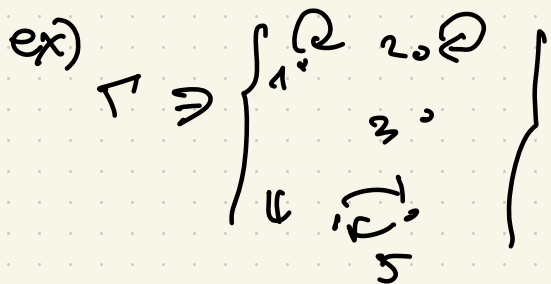 ex)
Γ ∋ { 1 2
3
4 5 }